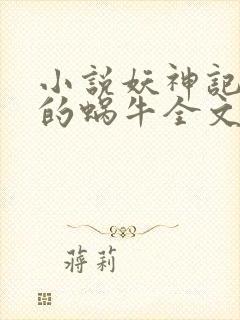 小説妖神記
的蝸牛全文
蔣莉